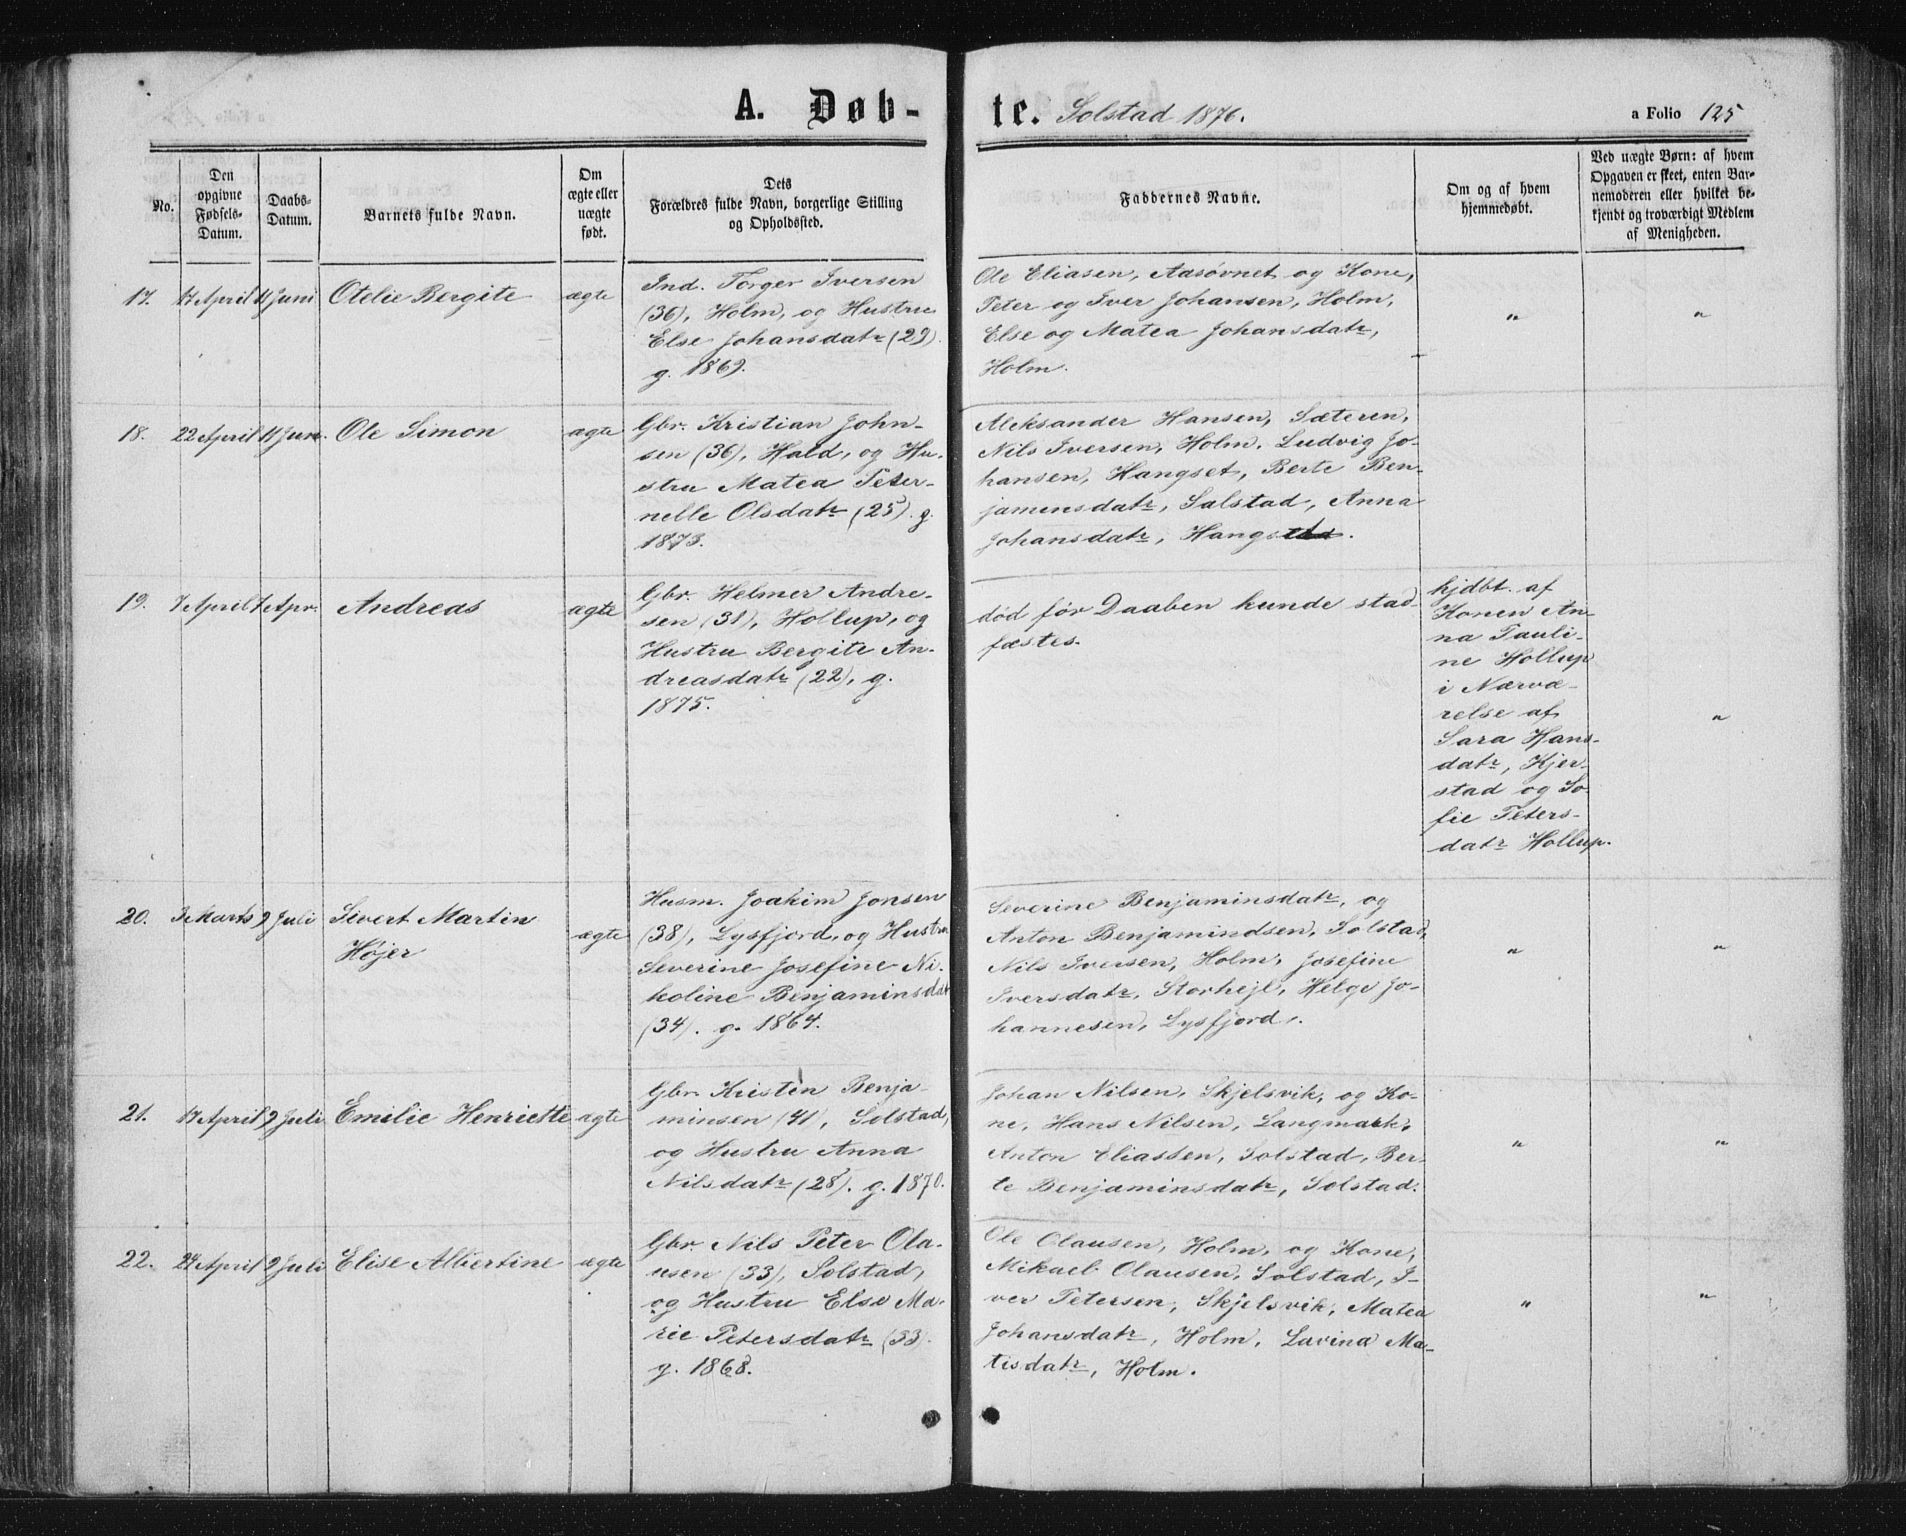 A. Døb-te. Solstad 1876. a Folio 125
No.
Den
opgivne
Fødsels-
Datum.
Daabs-
Datum.
Barnets fulde Navn.
Om
ægte eller
uægte
født.
Dets
Forældres fulde Navn, borgerlige Stilling
og Opholdssted.
Faddernes Navne.
Om og af hvem
hjemmedøbt.
Ved uægte Børn: af hvem
Opgaven er skeet, enten Bar-
nemoderen eller hvilket be-
kjendt og troværdigt Medlem
af Menigheden.
17. 17 April 11 Juni Otelie Bergite ægte
Ind. Torger Iversen
(36), Holm, og Hustru
Else Johansdatr (29).
g. 1869.
Ole Eliasen, Aasøvnet og Kone,
Peter og Iver Johansen, Holm,
Else og Matea Johansdatr,
Holm.
" "
18. 22 April 11 Juni. Ole Simon ægte
Gbr. Kristian John-
sen (36), Hald, og Hu-
stru Matea Peter-
nelle Olsdatr (25). g.
1873.
Aleksander Hansen, Sæteren,
Nils Iversen, Holm. Ludvig Jo-
hansen, Hangset, Berte Ben-
jamensdatr, Salstad, Anna
Johansdatr, Hangs.
19. 7 April 7 Apr. Andreas ægte
Gbr. Helmer Andre-
sen (31), Hollup, og
Hustru Bergite An-
dreasdatr (22), g.
1875.
død før Daaben kunde stad-
fæstes.
hjdbt. af
Konen An-
na Pauli-
ne Hollup
i Nærvæ-
relse af
Sara Hans-
datr, Kjer-
stad og So-
fie Peters-
datr Hollup.
"
20. 3 Marts 9 Juli Sivert Martin
Højer
ægte
Husm. Joakim Jonsen
(38), Lysfjord, og Hustru
Severine Josefine Ni-
koline Benjaminsdat
(34). g. 1864.
Severine Benjaminsdatr, og
Anton Benjamindsen, Solstad,
Nils Iversen, Holm, Josefine
Iversdatr, Storhejl, Helge Jo-
hannesen, Lysfjord.
" "
21. 17 April 9 Juli Emilie Henriette ægte
Gbr. Kristen Benja-
minsen (41, Solstad,
og Hustru Anna
Nilsdatr (28). g. 1870.
Johan Nilsen, Skjelsvik, og Ko-
ne, Hans Nilsen, Langmark,
Anton Eliassen, Solstad, Ber-
te Benjaminsdatr, Solstad.
" "
22. 24 April 9 Juli Elise Albertine ægte
Gbr. Nils Peter Ola-
usen (33), Solstad,
og Hustru Else Ma-
rie Petersdatr (33).
g. 1868.
Ole Olausen, Holm, og Kone,
Mikael Olausen, Solstad, I-
ver Petersen, Skjelsvik, Matea
Johansdatr, Holm, Lavina Ma-
tisdatr, Holm.
" "